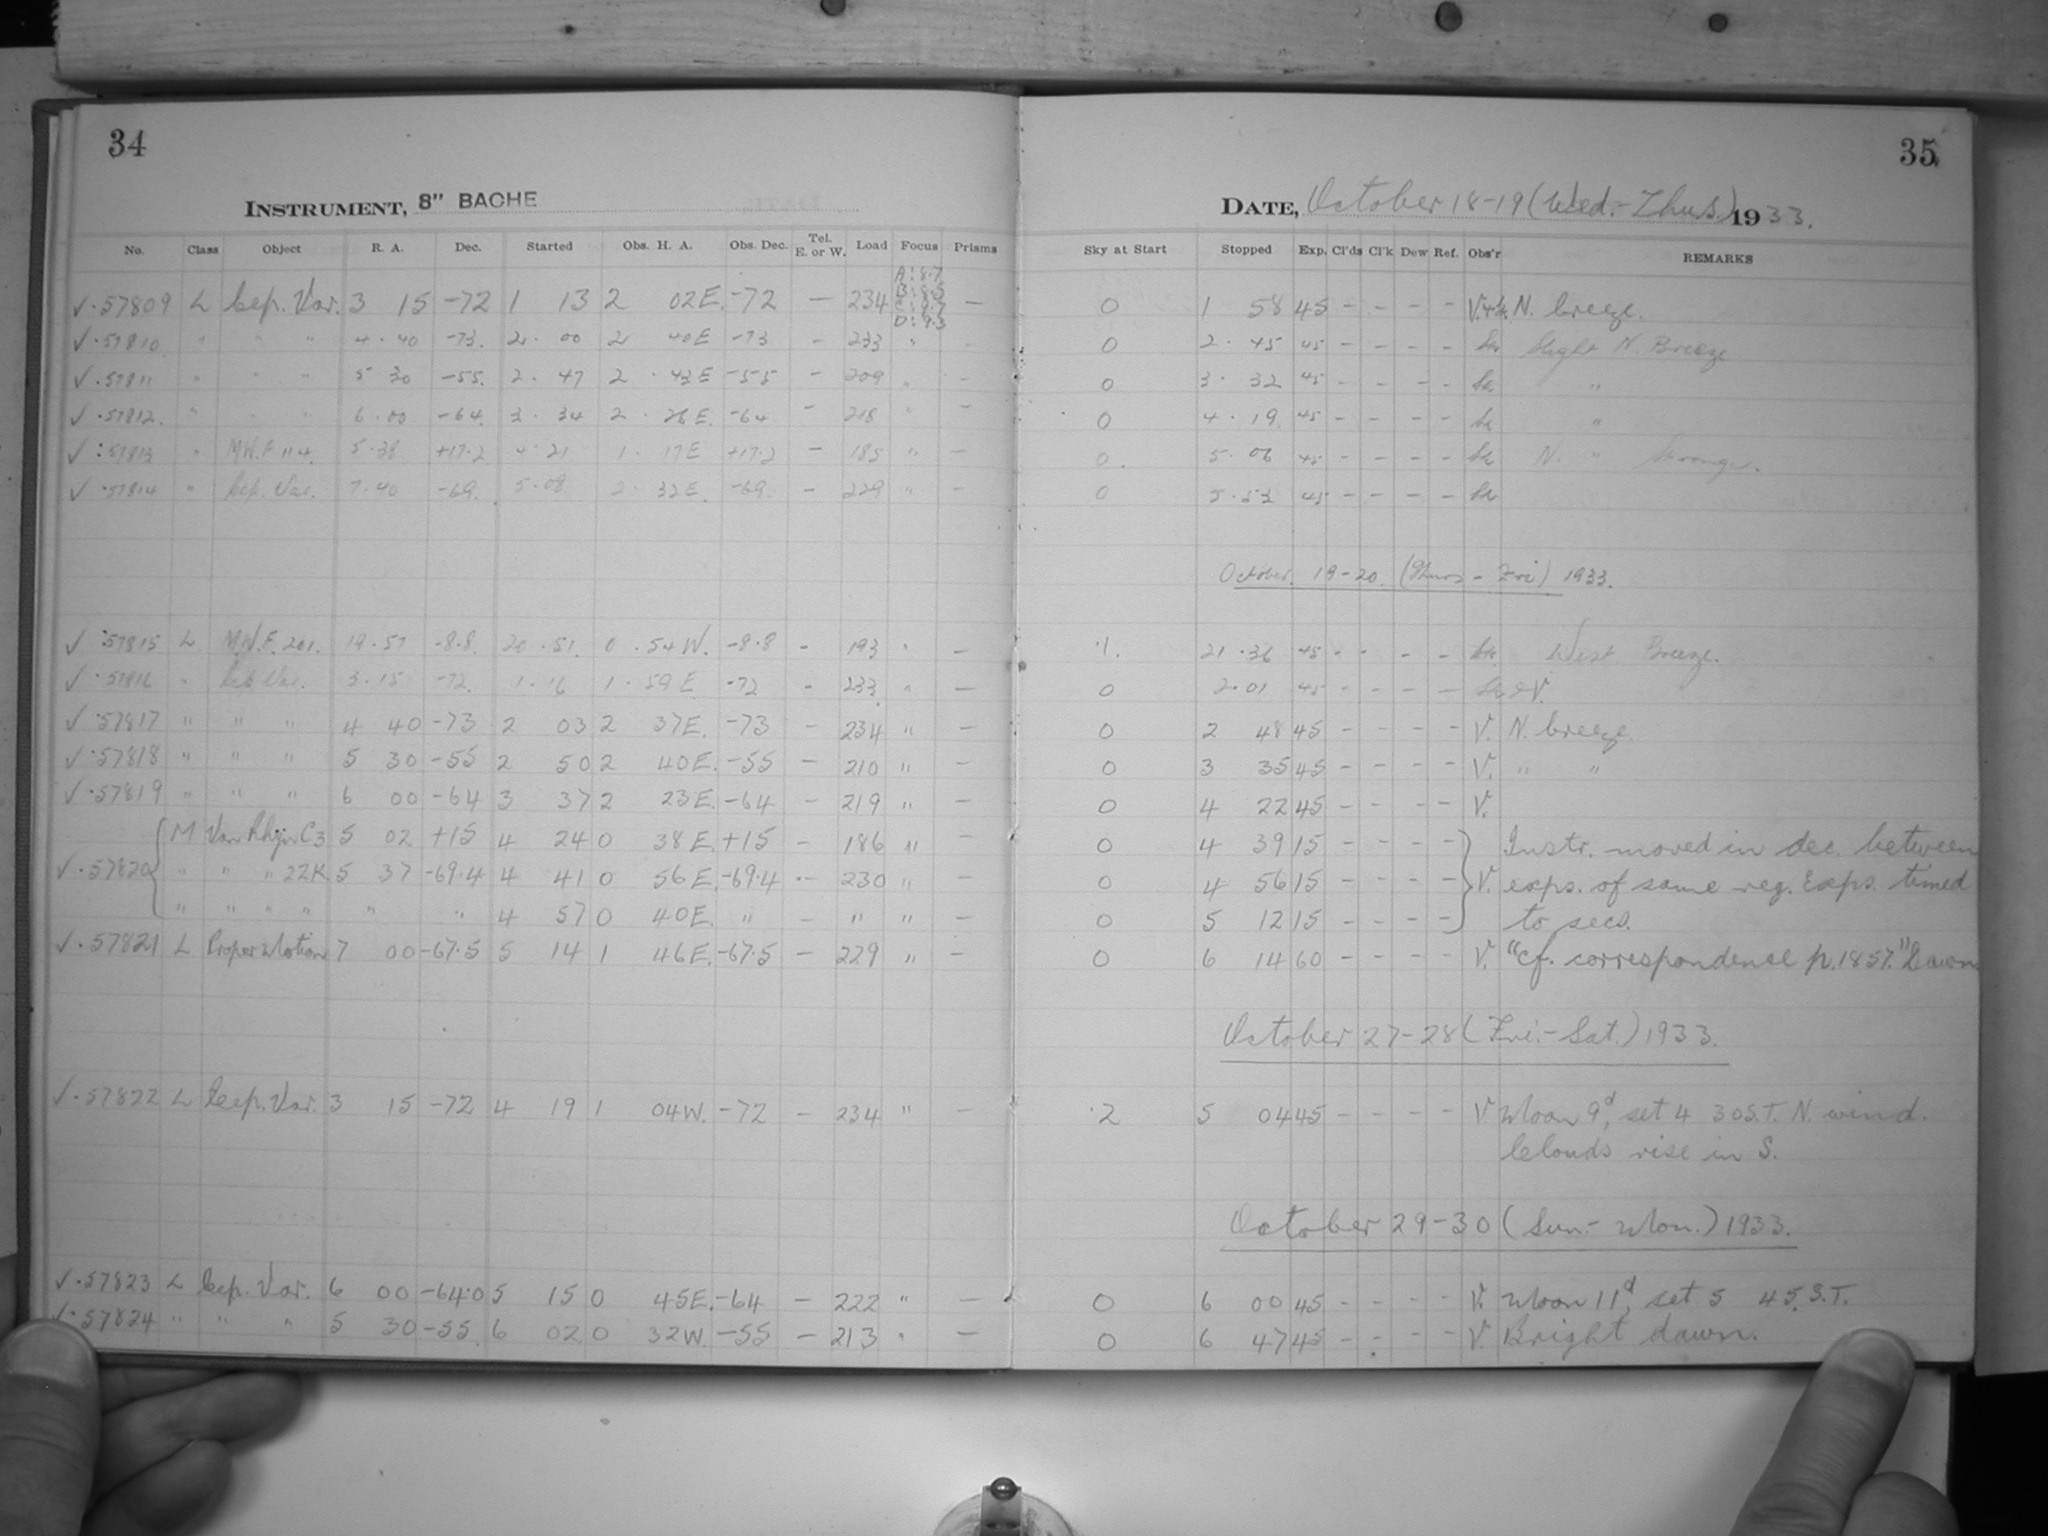 34
35
INSTRUMENT, 8" BACHE
DATE, October 18-19 (Wed.-Thurs.) 1933.
No. Class Object R. A. Dec. Started Obs. H. A. Obs. Dec. Tel. E. or W. Load Focus Prisms Sky at Start Stopped Exp. Cl'ds Cl'k Dew Ref. Obs'r REMARKS
✓·57809 L Cep. Var. 3 15 -72 1 13 2 02E. -72 — 234 A:8.7 B:8.5 C:8.7 D:9.3 — 0 1 58 45 - - - - N. breeze.
✓·57810 " " " 4·40 -73. 2·00 2 40E -73 - 233 " - 0 2·45 45 - - - - Slight N. Breeze
✓·57811 " " " 5 30 -55. 2·47 2·43E -55 - 209 " - 0 3·32 45 - - - - "
✓·57812. " " " 6·00 -64. 3·34 2·26E. -64 - 218 " - 0 4·19 45 - - - - "
✓:57813 " M.W.F 114. 5·38 +17.2 4·21 1·17E +17.2 - 185 " - 0. 5·06 45 - - - - N. " stronger.
✓·57814 " Cep. Var. 7·40 -69. 5·08 2·32E. -69. - 229 " - 0 5·53 45 - - - -
October. 19-20. (Thurs - Fri) 1933.
✓ :57815 L M.W.F. 201. 19·57 -8.8. 20·51. 0·54W. -8·8 - 193 " - ·1. 21·36 45 - - - - West Breeze.
✓·57816 " Cep Var. 3·15 -72. 1·16 1·59E -72 - 233 " - 0 2·01 45 - - - - & V.
✓·57817 " " " 4 40 -73 2 03 2 37E. -73 - 234 " - 0 2 48 45 - - - - V. N. breeze.
✓·57818 " " " 5 30 -55 2 50 2 40E. -55 - 210 " - 0 3 35 45 - - - - V. " "
✓·57819 " " " 6 00 -64 3 37 2 23E. -64 - 219 " - 0 4 22 45 - - - - V.
M Van Rhijn C3 5 02 +15 4 24 0 38E. +15 - 186 " - 0 4 39 15 - - - - Instr. moved in dec. between
✓·57820 " " " 22K. 5 37 -69.4 4 41 0 56E. -69.4 - 230 " - 0 4 56 15 - - - - V. exps. of same reg. Exps. timed
" " " " " " 4 57 0 40E. " - " " - 0 5 12 15 - - - - to secs.
✓·57821 L Proper Motion 7 00 -67.5 5 14 1 46E. -67.5 - 229 " - 0 6 14 60 - - - - V. "cf. correspondence p. 1857." Dawn
October 27-28 (Fri.-Sat.) 1933.
✓·57822 L Cep. Var. 3 15 -72 4 19 1 04W. -72 - 234 " - ·2 5 04 45 - - - - V. Moon 9d, set 4 30 S.T. N. wind.
Clouds rise in S.
October 29-30 (Sun.-Mon.) 1933.
✓·57823 L Cep. Var. 6 00 -64.0 5 15 0 45E. -64 - 222 " - 0 6 00 45 - - - - V. Moon 11d, set 5 45. S.T.
✓·57824 " " " 5 30 -55. 6 02 0 32W. -55 - 213 " - 0 6 47 45 - - - - V. Bright dawn.